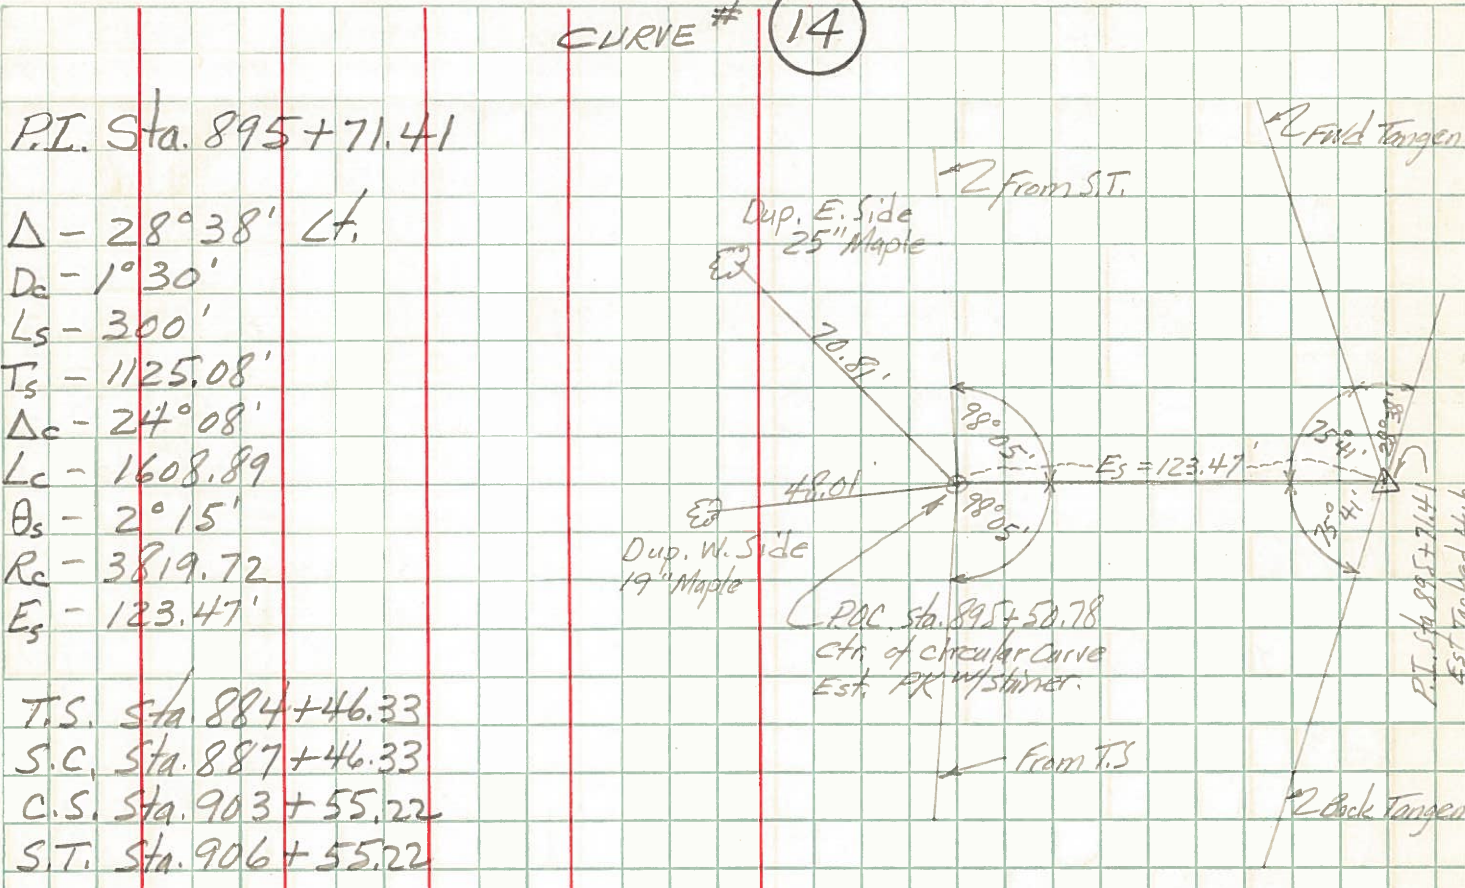 CURVE # 14
P.I. Sta. 895+71.41
Δ - 28°38' Lt.
Dc - 1°30'
Ls - 300'
Ts - 1125.08'
Δc - 24°08'
Lc - 1608.89
θs - 2°15'
Rc - 3819.72
Es - 123.47'
T.S. Sta. 884+46.33
S.C. Sta. 887+46.33
C.S. Sta. 903+55.22
S.T. Sta. 906+55.22
Fwd Tangen
From S.T.
Dup. E. Side
25" Maple
98°05'
75°41'
28°38'
Es = 123.47'
48.01'
98°05'
75°41'
Dup. W. Side
19" Maple
P.O.C. Sta. 895+50.78
Ctr. of circular Curve
Est. PK w/shiner.
P.I. Sta 895+71.41
From T.S
Back Tangen